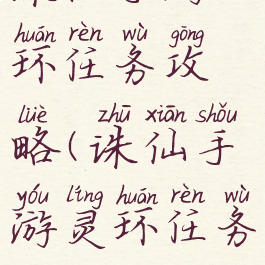 huán rèn wù gōng
环任务攻
lüè zhū xiān shǒu
略(诛仙手
yóu líng huán rèn wù
游灵环任务